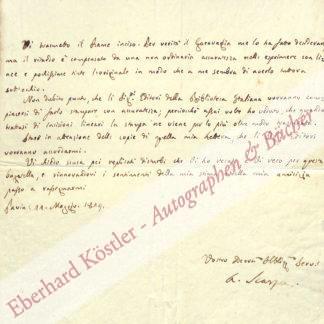 Vi trasmetto il Rame inciso. Per verità il Garavaglia me lo ha fatto desiderare
ma il ritardo è compensato da una non ordinaria accuratezza nell' esprimere con li
nee e pochissime tinte l'originale in modo che a me sembra di averlo tuttora
sott'occhio.
Non dubito punto, che li Sigri. Editori della Biblioteca Italiana vorranno
farlo stampare con accuratezza, perciocchè ogni volta
trattasi di incisioni lineari la stampa ne viene per lo più
Starò in attenzione delle copie di quella mia lettera, che li Editori
vorranno accordarmi.
Vi chiedo scusa pei replicati disturbi che vi ho di vero per questa
bagatella, e rinnovandovi i sentimenti della mia stima mia amicizia
passo a rassegnarmi
Pavia 11. Maggio. 1825.
Vostro Devmo Obblmo Servo
A. Scarpa
Eberhard Köstler - Autographen & Bücher